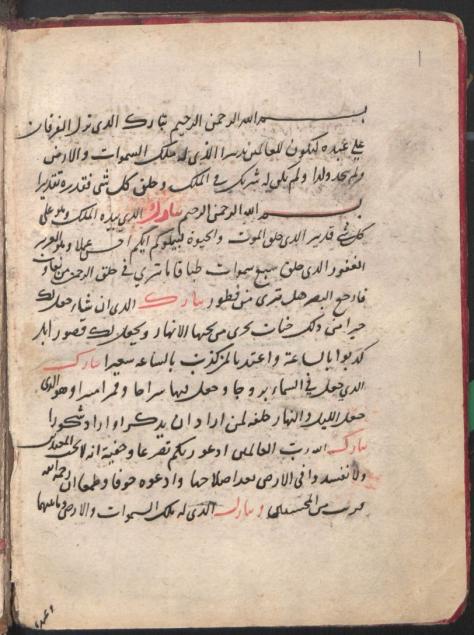 بسم الله الرحمن الرحيم تبارك الذى نزل الفرقان
على عبده ليكون للعالمين نذيرا الذى له ملك السموات والارض
ولم يتخذ ولدا ولم يكن له شريك فى الملك وخلق كل شى فقدره تقديرا
بسم الله الرحمن الرحيم تبارك الذى بيده الملك وهو على
كل شى قدير الذى خلق الموت والحيوة ليبلوكم ايكم احسن عملا وهو العزيز
الغفور الذى خلق سبع سموات طباقا ما ترى فى خلق الرحمن من تفاوت
فارجع البصر هل ترى من فطور تبارك الذى ان شاء جعل لك
خيرا من ذلك جنات تجرى من تحتها الانهار ويجعل لك قصورا بل
كذبوا بالساعة واعتدنا لمن كذب بالساعه سعيرا تبارك
الذى جعل فى السماء بروجا وجعل فيها سراجا وقمرا منيرا وهو الذى
جعل الليل والنهار خلفه لمن اراد ان يذكر او اراد شكورا
تبارك الله رب العالمين ادعو ربكم تضرعا وخفية انه لا يحب المعتدين
ولا تفسدوا فى الارض بعد اصلاحها وادعوه خوفا وطمعا ان رحمة الله
قريب من المحسنين وتبارك الذى له ملك السموات والارض وما بينهما